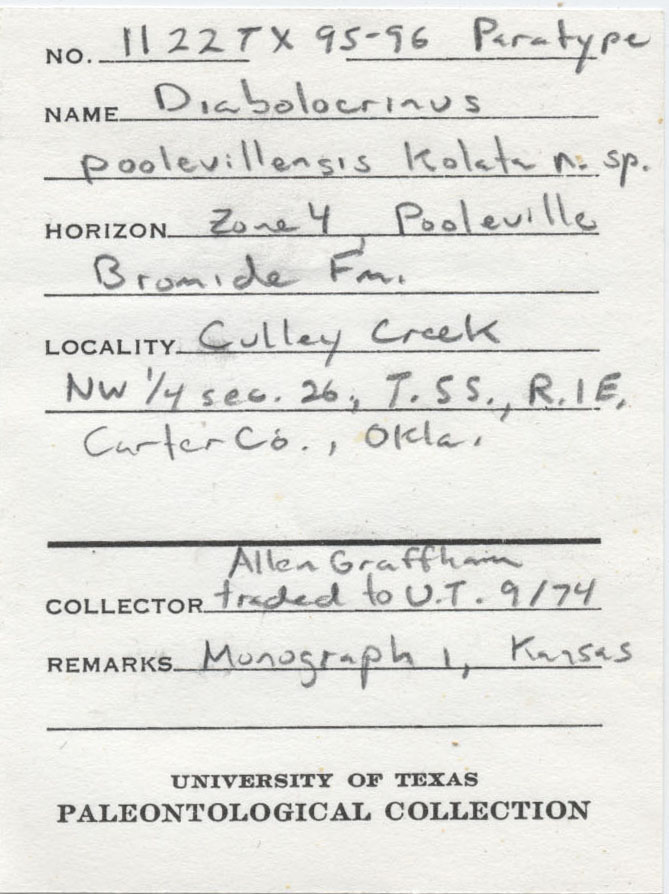 NO. 1122TX 95-96 Paratype
NAME Diabolocrinus
poolevillensis Kolata n. sp.
HORIZON Zone 4, Pooleville
Bromide Fm.
LOCALITY Culley Creek
NW 1/4 sec. 26, T. 5 S., R. 1 E,
Carter Co., Okla.
Allen Graffham
COLLECTOR traded to U.T. 9/74
REMARKS Monograph 1, Kansas
UNIVERSITY OF TEXAS
PALEONTOLOGICAL COLLECTION